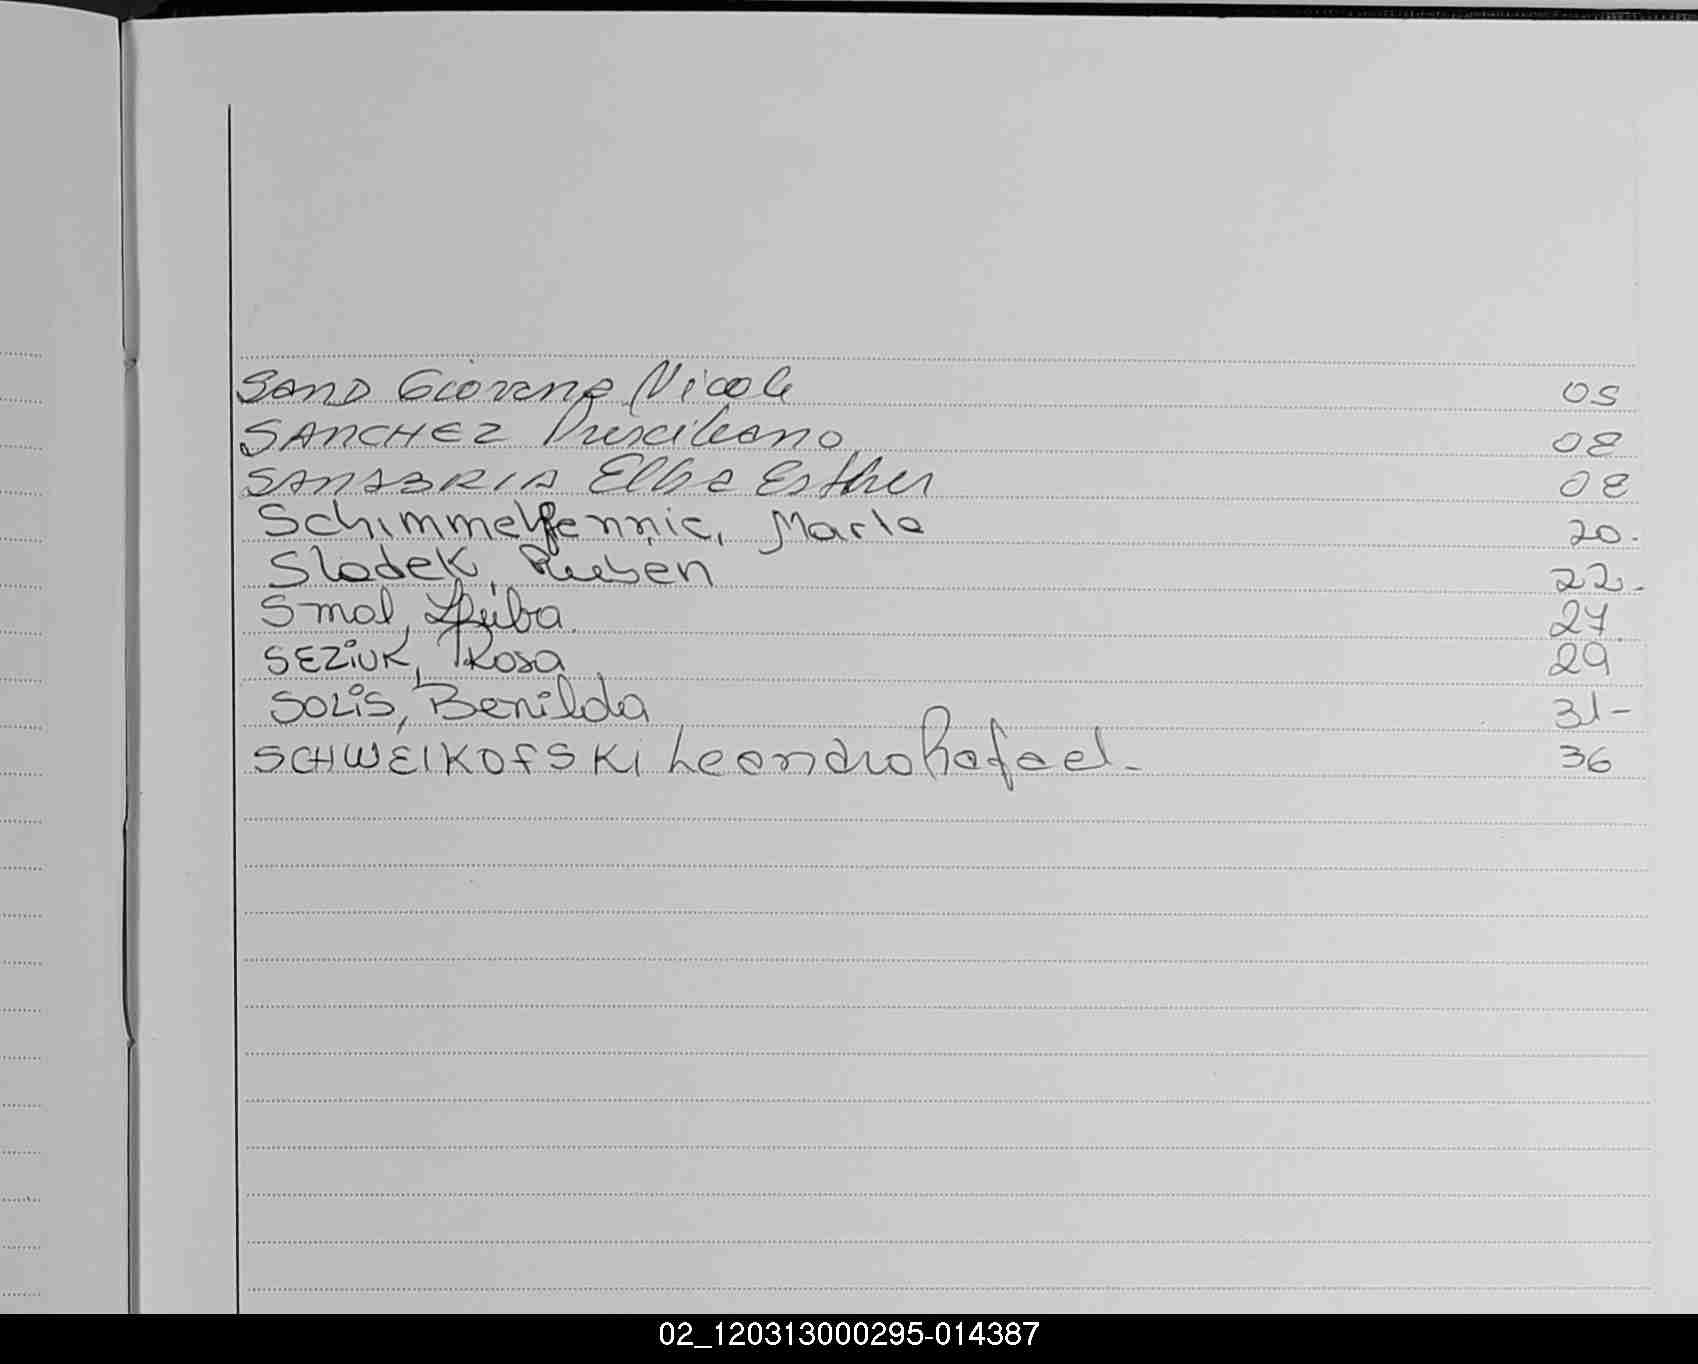 SAND Giovana Nicole 05
SANCHEZ Prisciliano 08
SANABRIA Elba Esther 08
Schimmelfennic, Marla 20.
Sladek, Ruben 22.
Smal, Liuba. 27.
SEZiUK, Rosa 29
SOLiS, Benilda 31-
SCHWEIKOFSKi Leandro Rafael. 36
02_120313000295-014387